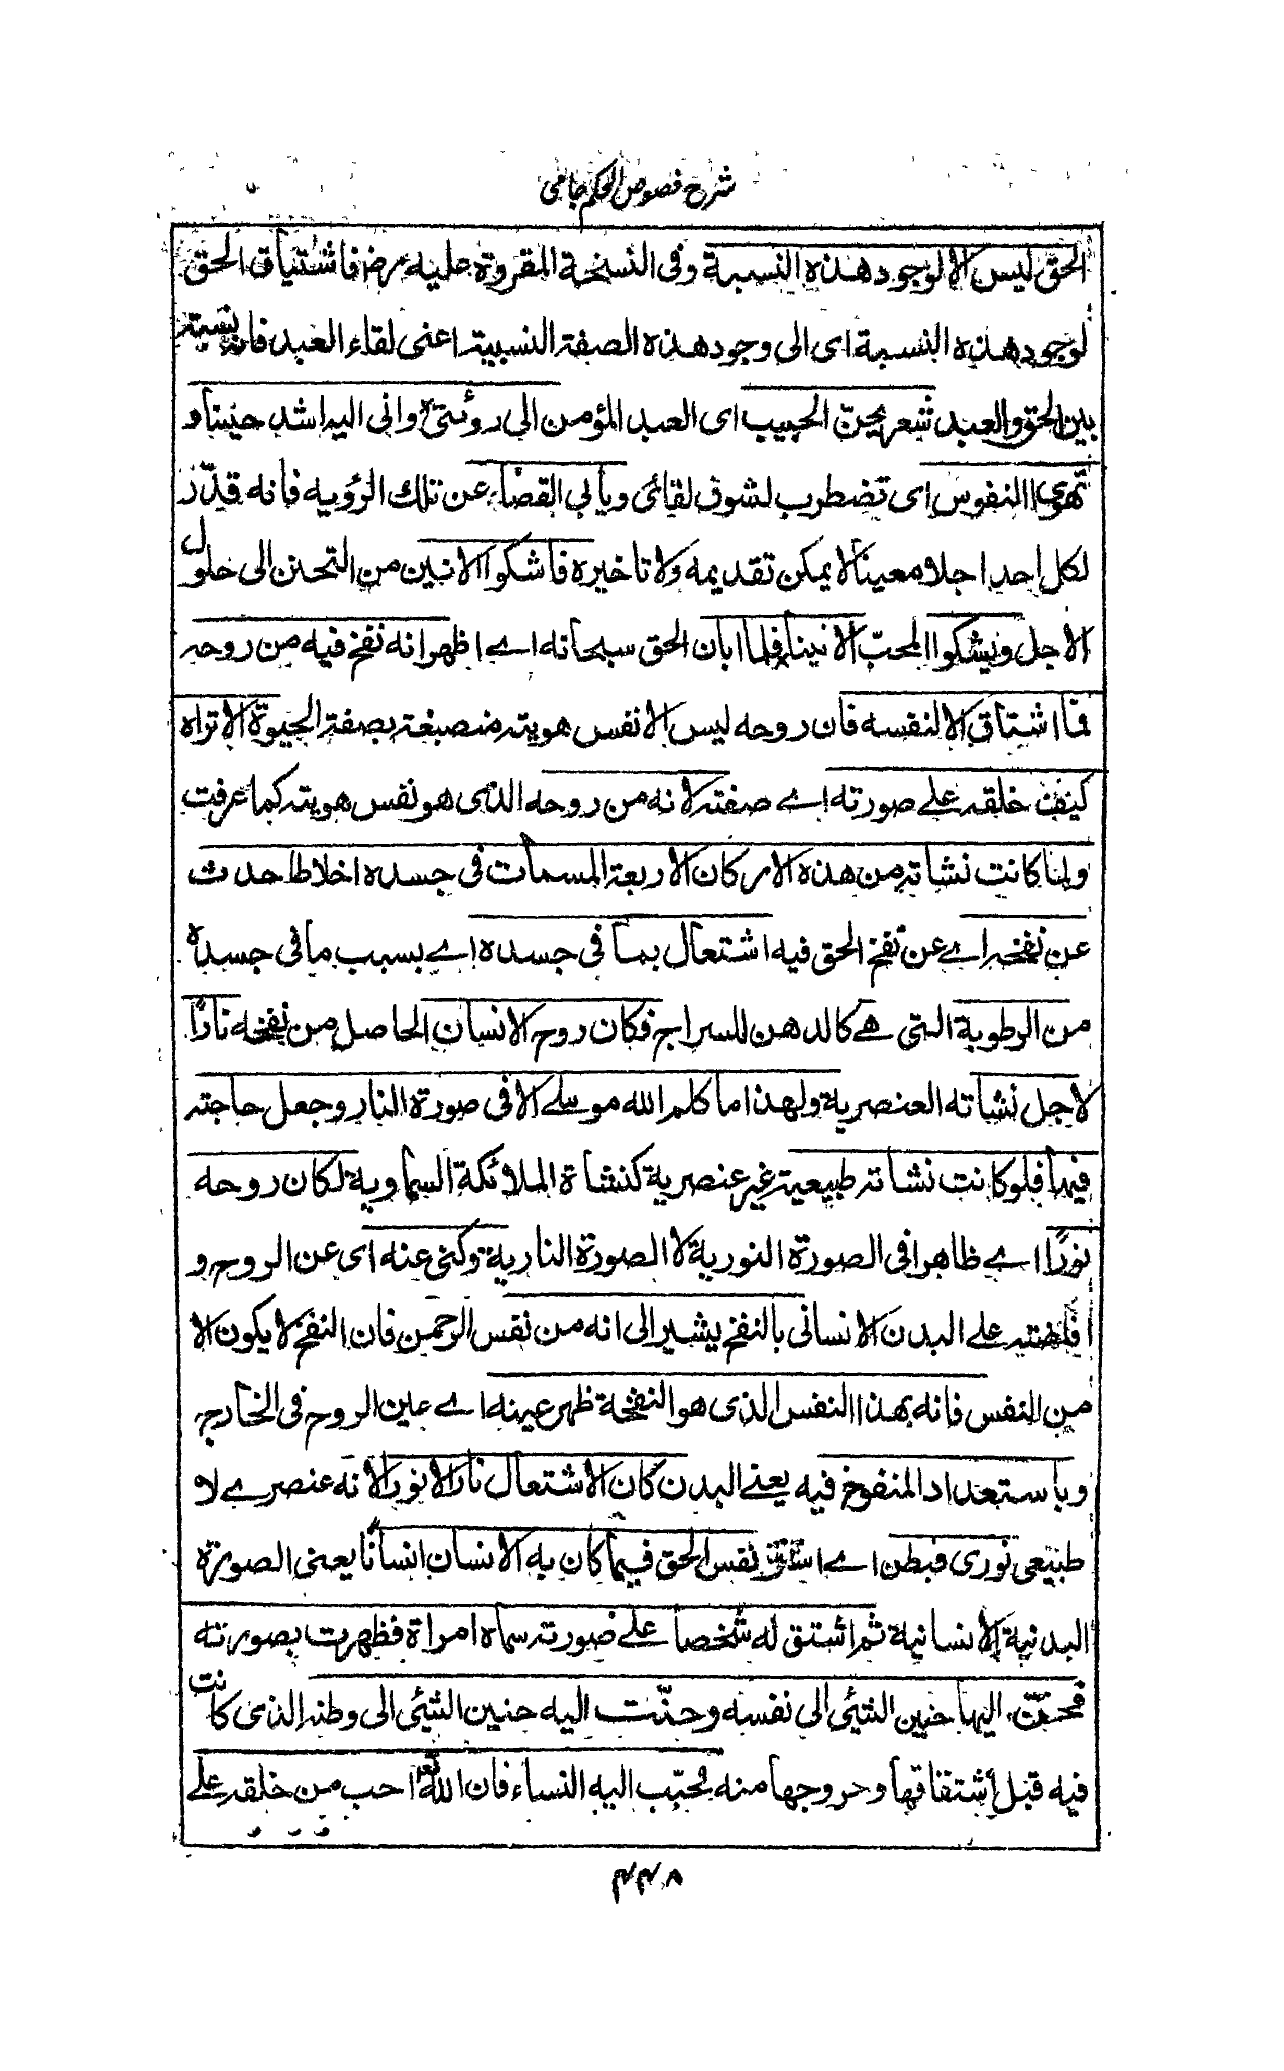 شرح فصوص الحكم جامى
الحق ليس الا لوجود هذه النسبة وفى النسخة المقروة عليه رض فاشتياق الحق
لوجود هذه النسبة اى الى وجود هذه الصفة النسبية اعنى لقاء العبد فانه نسبته
بين الحق والعبد شعر يحنّ الحبيب اى العبد المؤمن الى روئتى وانى اليه اشد حنينا و
تهوى النفوس اى تضطرب لشوق لقائى ويابى القضاء عن تلك الرؤيه فانه قدّر
لكل احد اجلا معينا لا يمكن تقديمه ولا تاخيره فاشكوا الانين من التحنن الى حلول
الاجل ويشكوا المحبّ الانينا فلما ابان الحق سبحانه اے اظهر انه نفخ فيه من روحه
فما اشتاق الا لنفسه فان روحه ليس الا نفس هويته منصبغة بصفة الحيوة الا تراه
كيف خلقه علے صورته اے صفته لانه من روحه الذى هو نفس هويته كما عرفت
ولما كانت نشاته من هذه الاركان الاربعة المسمات فى جسده اخلاطا حدث
عن نفخه اے عن نفخ الحق فيه اشتعال بما فى جسده اے بسبب ما فى جسده
من الرطوبة التى هے كالدهن للسراج فكان روح الانسان الحاصل من نفخه نارًا
لاجل نشاته العنصرية ولهذا ما كلم الله موسے الا فى صورة النار وجعل حاجته
فيها فلو كانت نشاته طبيعية غير عنصرية كنشاة الملائكة السماوية لكان روحه
نورًا اے ظاهرا فى الصورة النورية لا الصورة النارية وكنى عنه اى عن الروح و
افاضته علے البدن الانسانى بالنفخ يشير الى انه من نفس الرحمن فان النفخ لا يكون الا
من النفس فانه بهذا النفس الذى هو النفخة ظهر عينه اے عين الروح فى الخارج
وباستعداد المنفوخ فيه يعنے البدن كان الاشتعال نارا لا نورا لانه عنصرے لا
طبيعى نورى فبطن اے استتر نفس الحق فيما كان به الانسان انسانًا يعنى الصورة
البدنية الانسانية ثم اشتق له شخصا علے صورته سماه امراة فظهرت بصورته
فحنّ اليها حنين الشئى الى نفسه وحنّت اليه حنين الشئى الى وطنه الذى كانت
فيه قبل اشتقاقها وخروجها منه فحبّب اليه النساء فان الله تعہ احب من خلقه علے
۴۴۸